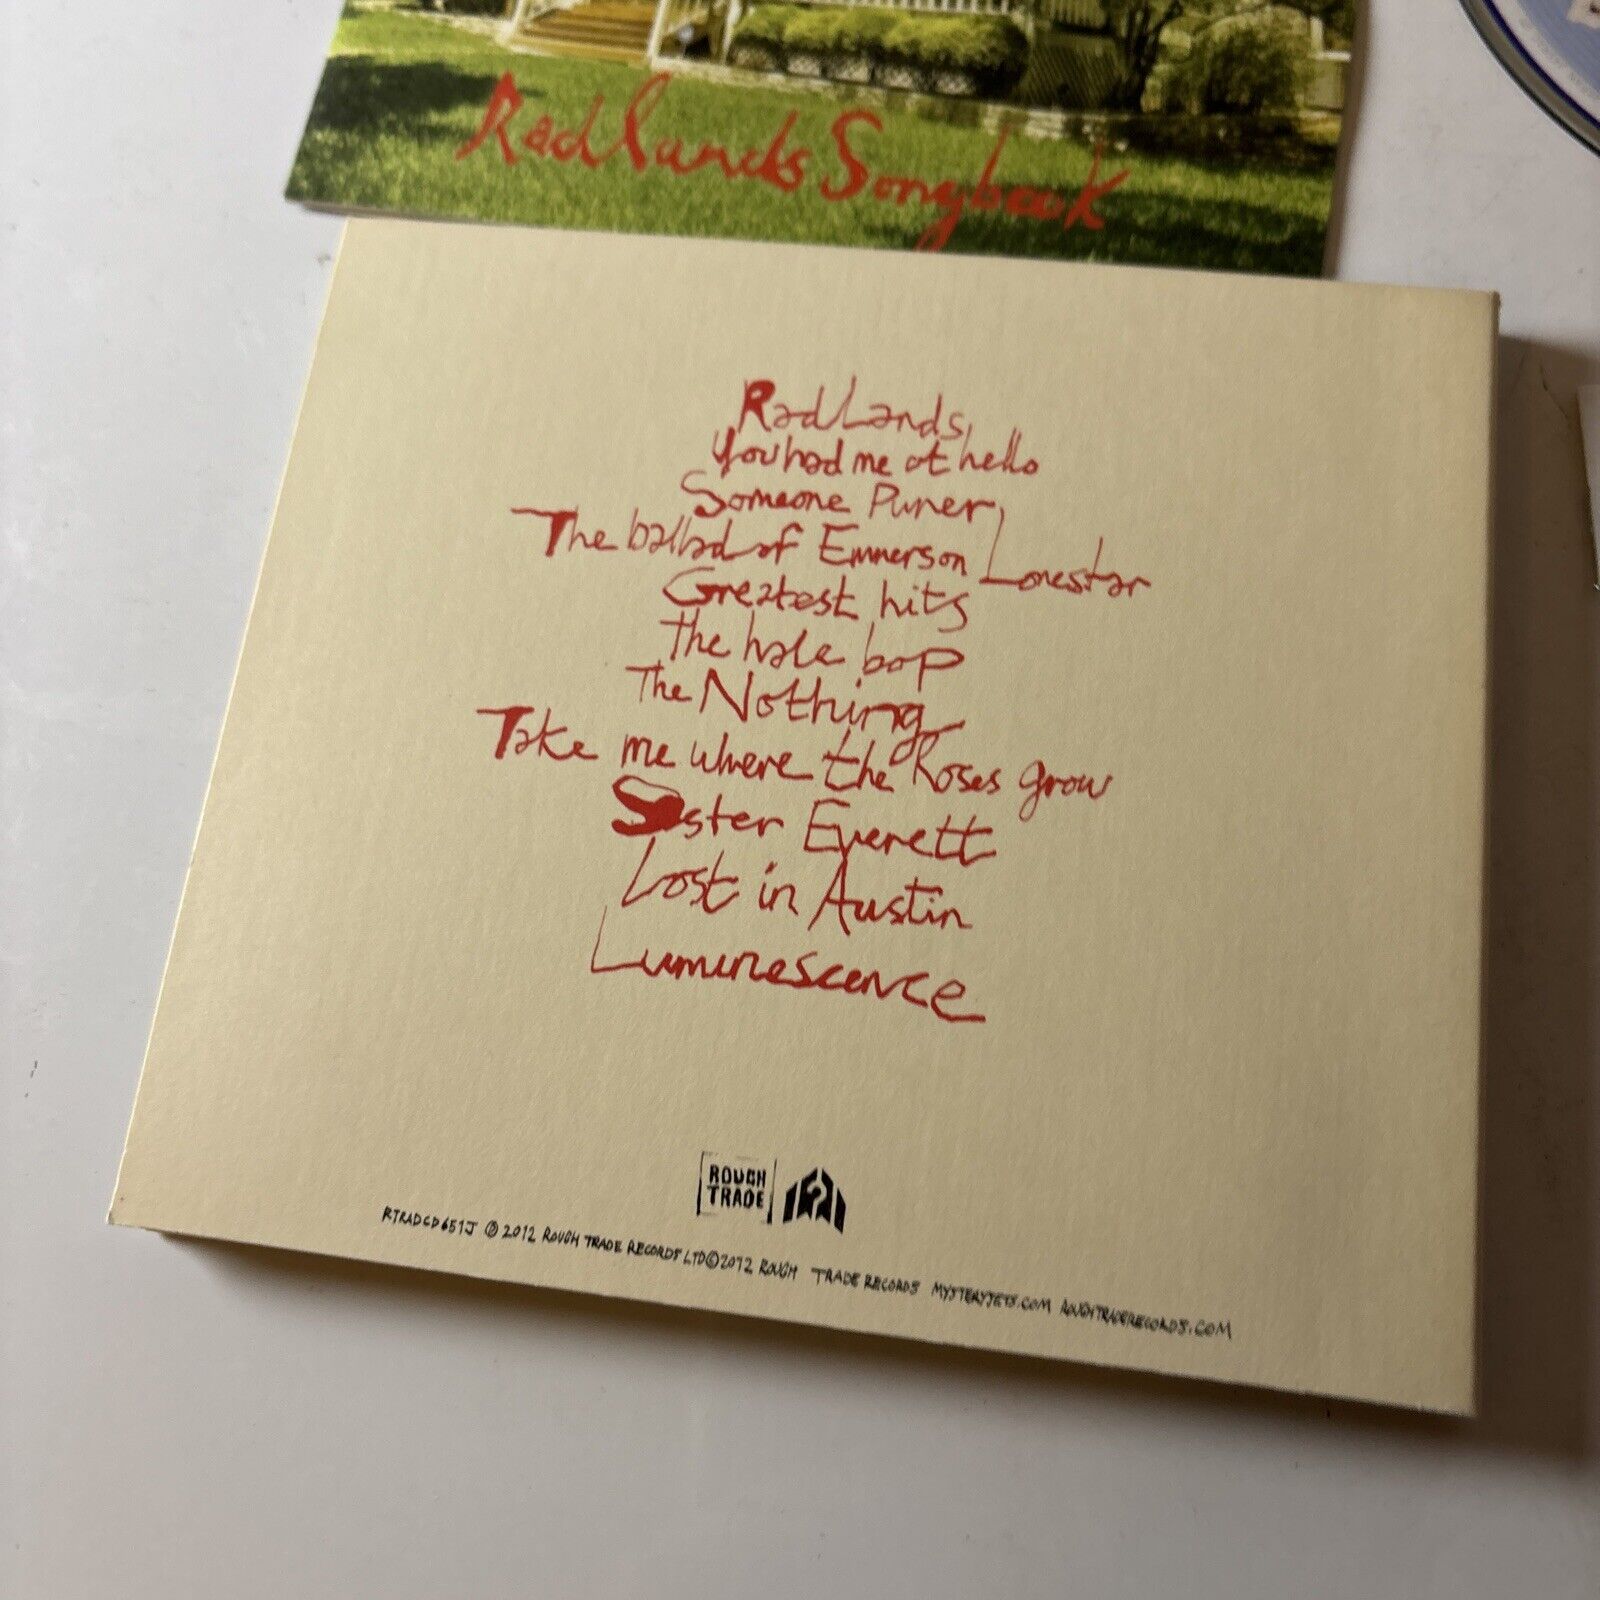 Radlands Songbook
Radlands,
You had me at hello
Someone Purer,
The ballad of Emmerson Lonestar
Greatest hits
The hale bop
The Nothing
Take me where the Roses grow
Sister Everett
Lost in Austin
Luminescence
ROUGH
TRADE
RTRADCD651J ℗ 2012 ROUGH TRADE RECORDS LTD © 2012 ROUGH TRADE RECORDS MYSTERYJETS.COM ROUGHTRADERECORDS.COM